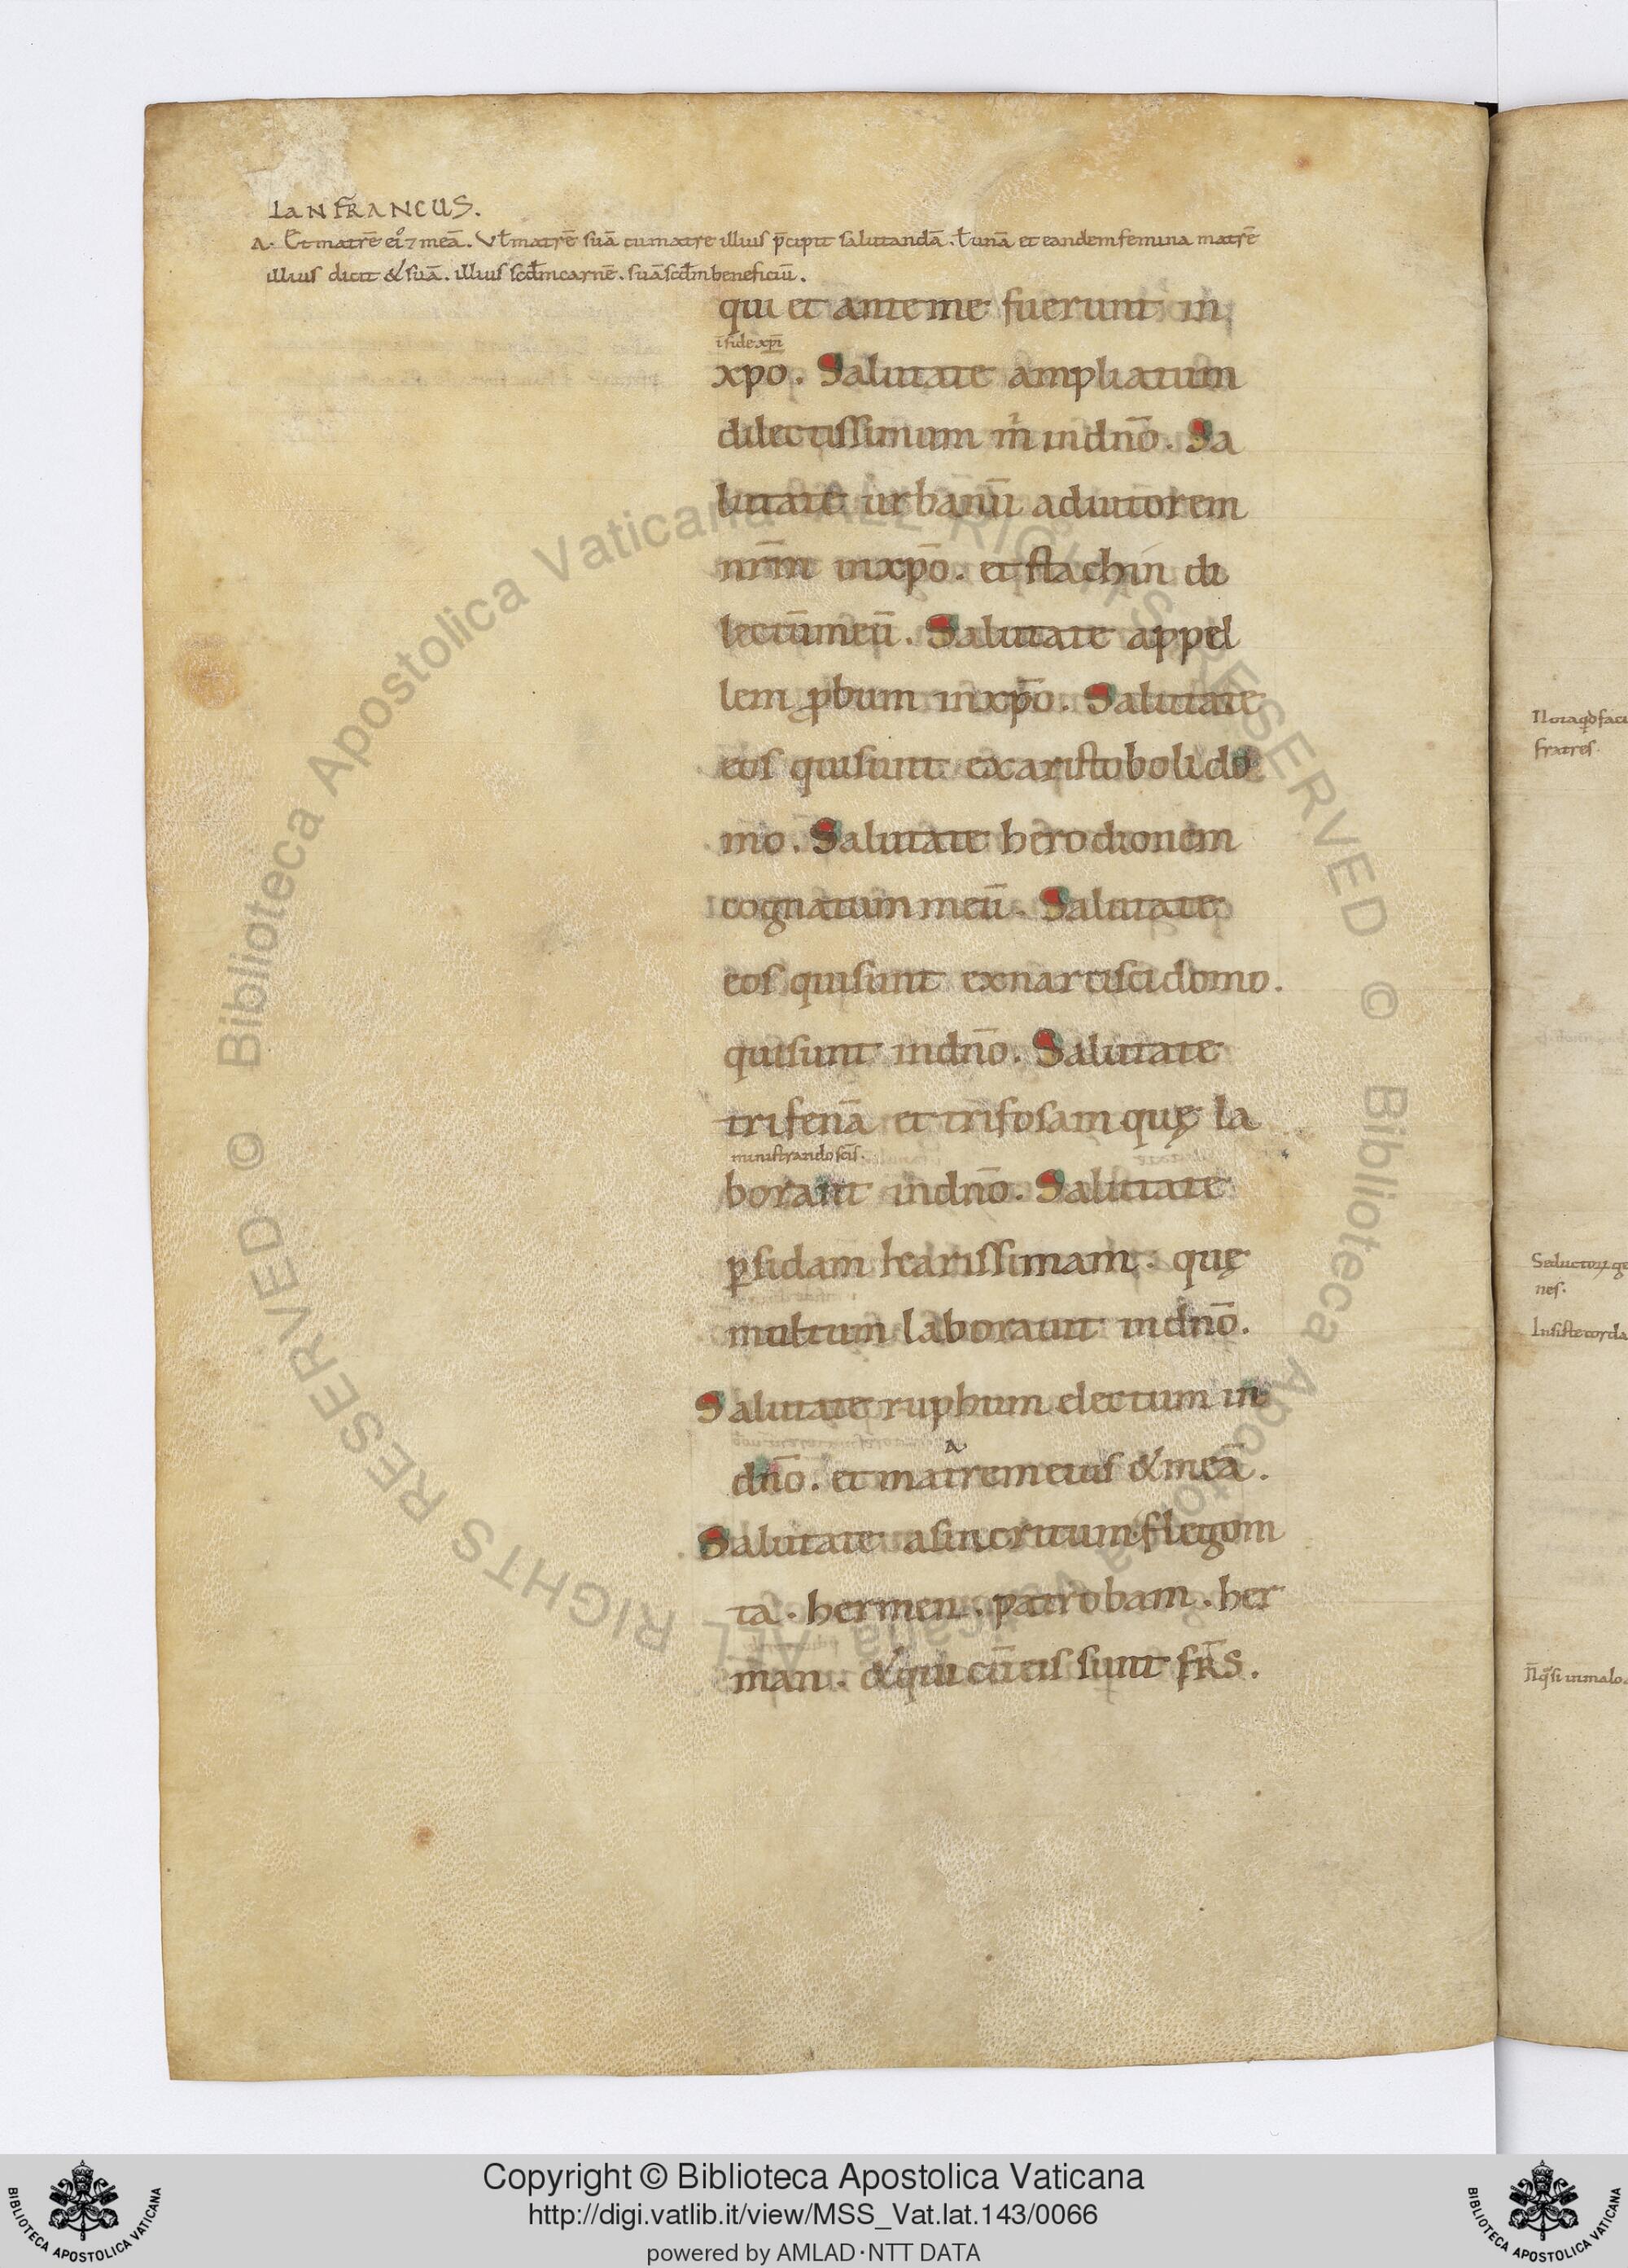 LaNFRANCUS.
A. Et matrē eiꝰ ⁊ meā. Vł matrē suā cu matre illius p̄cipit salutandā. ł unā et eandem femina matrē
illius dicit & suā. illius scđm carnē. suā scđm beneficiū.
qui et ante me fuerunt in
ī fide xp̄i
xp̄o. Salutate ampliatum
dilectissimum m̊ in dn̄o. Sa
lutate urbanū adiutorem
nr̄m in xp̄o. et stachin di
lectū meū. Salutate appel
lem ꝓbum in xp̄o. Salutate
eos qui sunt ex aristoboli do
mo. Salutate herodionem
cognatum meū. Salutate
eos qui sunt ex narcisci domo.
qui sunt in dn̄o. Salutate
trifenā et trifosam quę la
ministrando sc̄is.
borant in dn̄o. Salutate
ꝑsidam karissimam. quę
multum laborauit in dn̄o.
Salutate ruphum electum in
A
dn̄o. et matrem eius & meā.
Salutate asincritum. flegom
ta. hermen. patrobam. her
man. & qui cū eis sunt fr̄s.
Noia qđ faci
fratres.
Seductoꝝ ge
nes.
Insiste corda
N̄ qͣsi in malo
© Biblioteca Apostolica Vaticana ALL RIGHTS RESERVED © Biblioteca Apostolica Vaticana ALL RIGHTS RESERVED
BIBLIOTECA APOSTOLICA VATICANA
Copyright © Biblioteca Apostolica Vaticana
http://digi.vatlib.it/view/MSS_Vat.lat.143/0066
powered by AMLAD·NTT DATA
BIBLIOTECA APOSTOLICA VATICANA